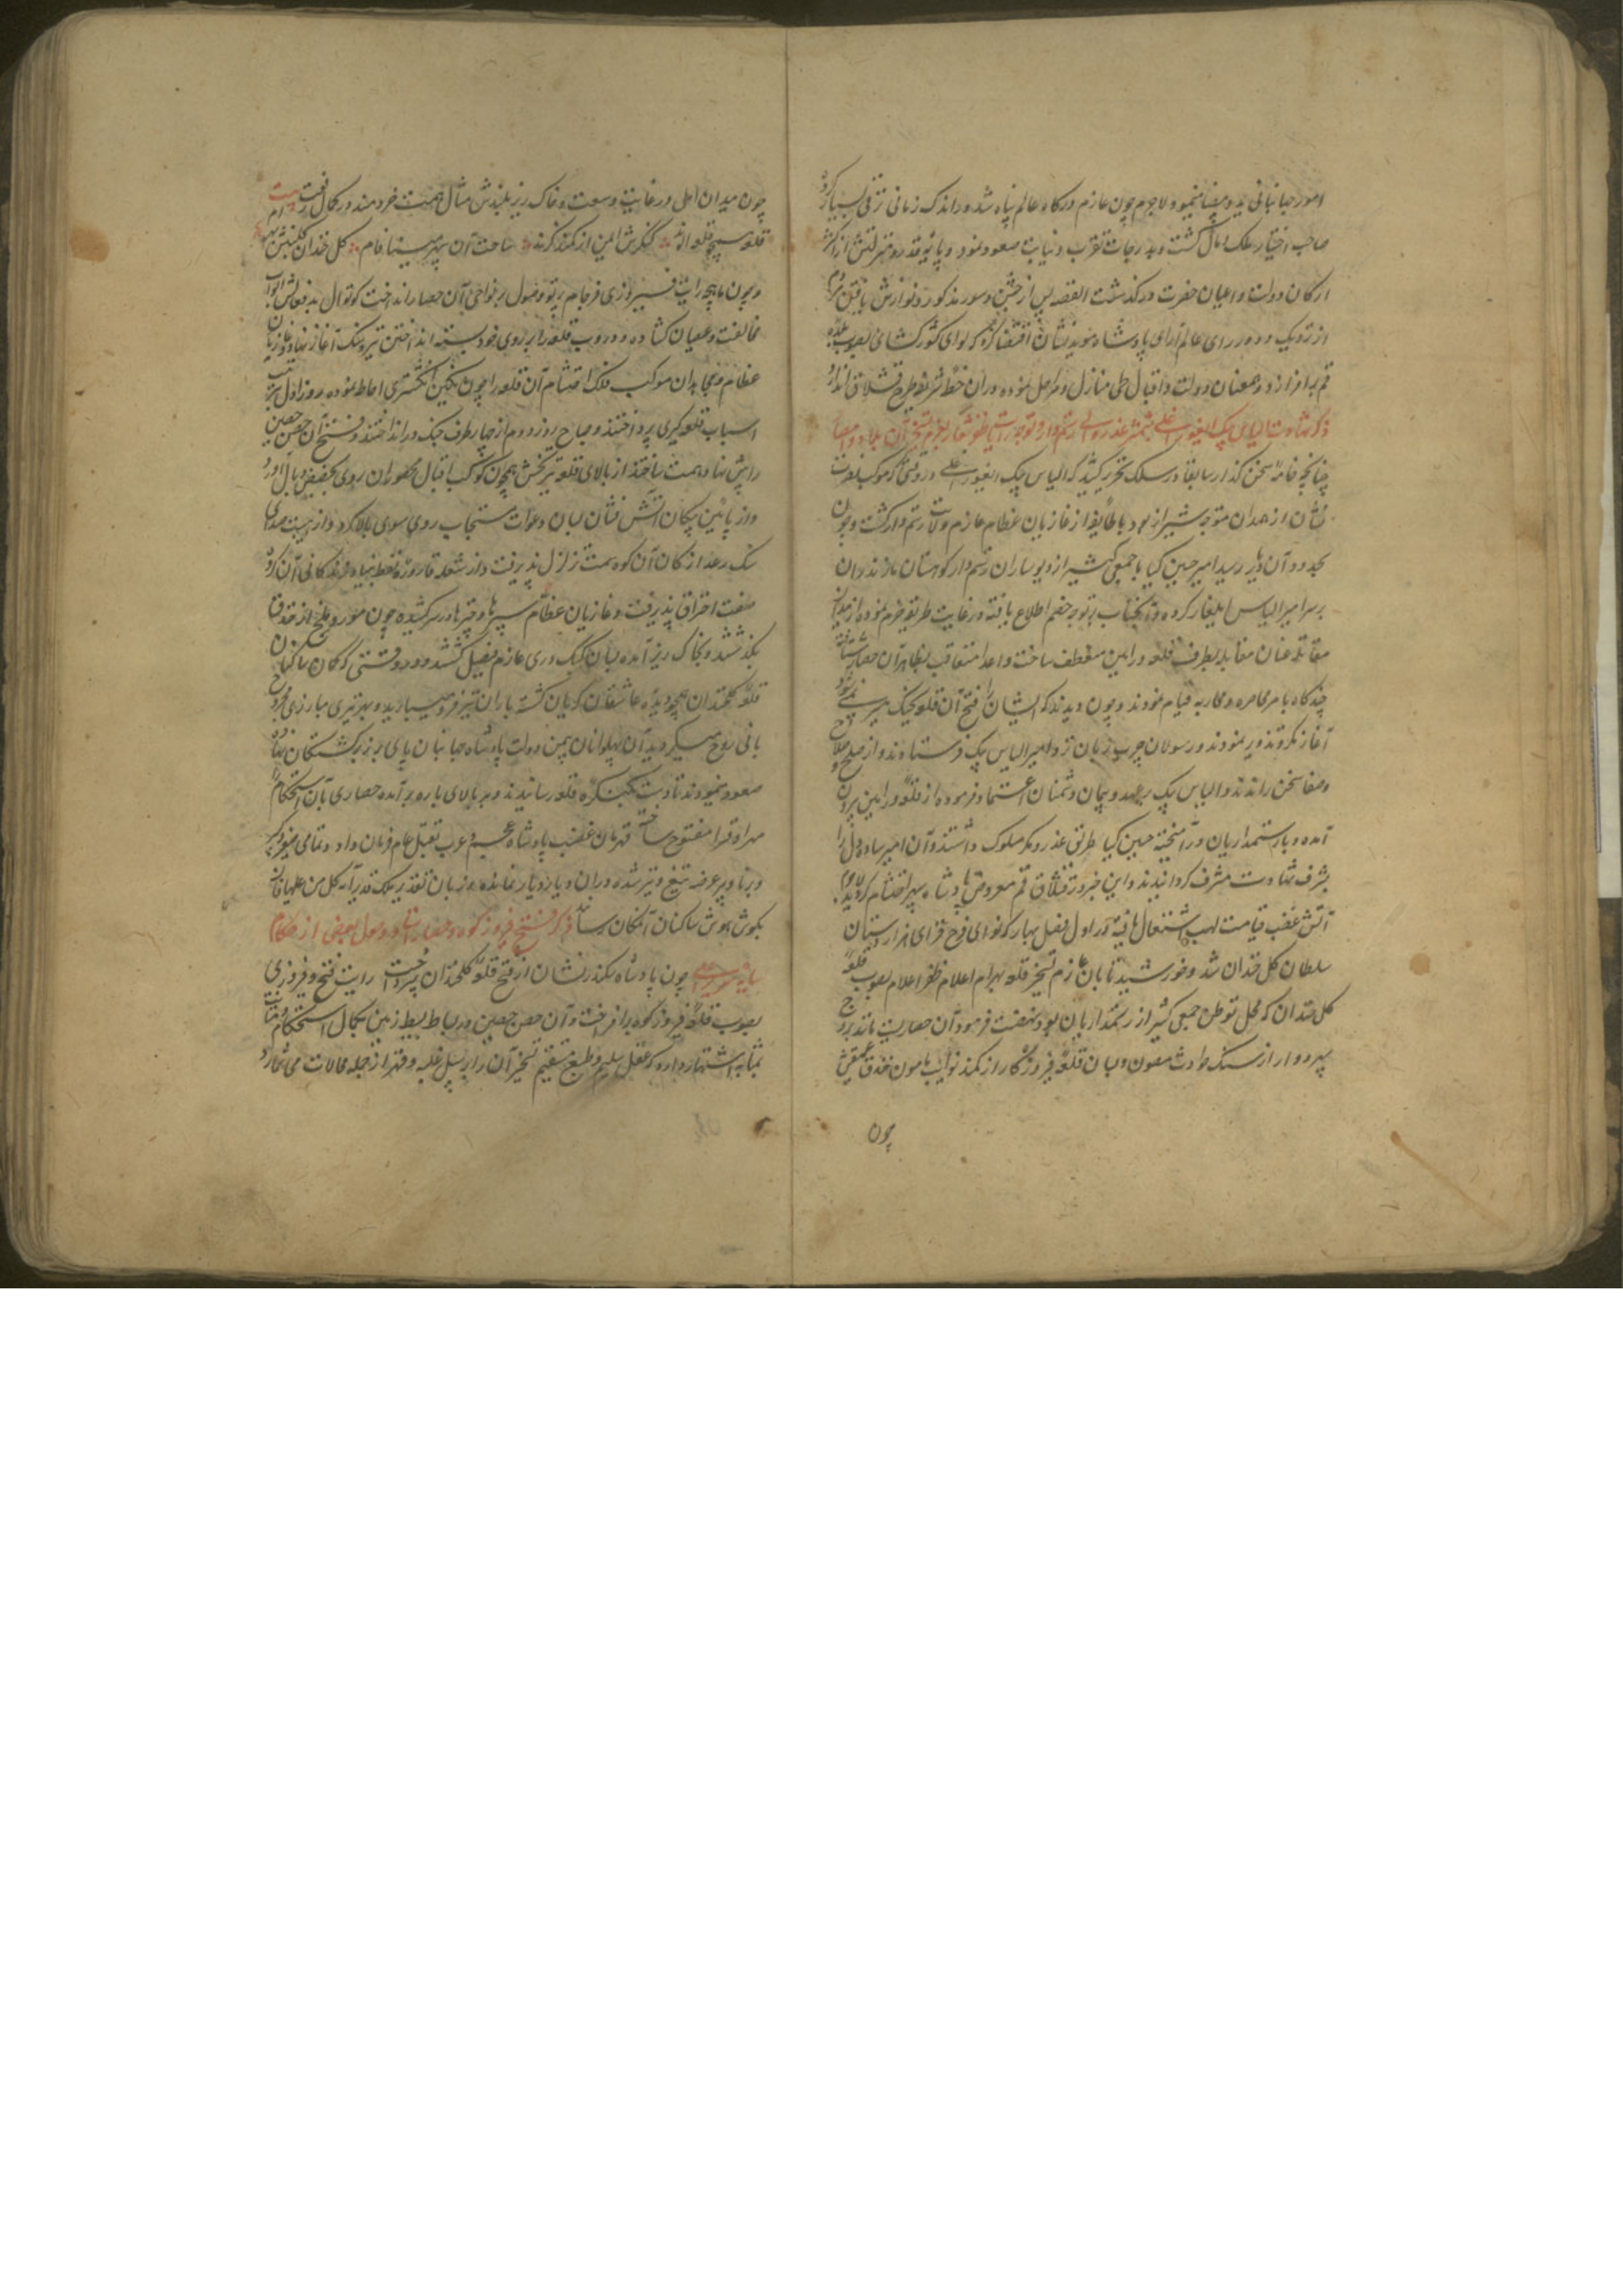 امور جهانبانی ید و بیضا مینمود لاجرم چون عازم درگاه عالم پناه شد در اندک زمانی ترقی بسیار کرده
صاحب اختیار ملک و مال گشت و بدرجات تقرب و نیابت صعود نمود و پایهٔ قدر و منزلتش از اکثر
ارکان دولت و اعیان حضرت درگذشت القصه پس از جشن و سور مذکور و نوازش یافتن مردم
از نزدیک و دور رای عالم‌آرای پادشاه مؤید نشان اقتضا کرد که لوای کشورگشائی بصوب بلده
قم برافرازد و همعنان دولت و اقبال طی منازل و مراحل نموده در آن خطه شریفه طرح قشلاق اندازد
ذکر شهادت الیاس بیک ایغور اغلی بشمشیر غدر والی رستمدار و توجه رایات ظفر شعار بعزم تسخیر آن بلاد و امصار
چنانچه خامهٔ سخن گذار سابقا در سلک تحریر کشید که الیاس بیک ایغور اغلی در وقتی که موکب نصرت
نشان از همدان متوجه شیراز بود با طایفه از غازیان عظام عازم ولایت رستمدار گشت و چون
بحدود آن دیار رسید امیر حسین کیا با جمعی کثیر از دیوساران رستمدار و کوهستان مازندران
بر سر امیر الیاس ایلغار کرده و آنجناب بر توجه خصم اطلاع یافته و رعایت طریقه حزم نموده از میدان
مقاتله عنان مقابله بطرف قلعه ورامین منعطف ساخت و اعدا متعاقب بظاهر آن حصار شتافته
چند گاه بامر محاصره و محاربه قیام نمودند و چون دیدند که ایشان را فتح آن قلعه بجنگ میسر نمی‌شود
آغاز مکر و تزویر نمودند و رسولان چرب زبان نزد امیر الیاس بیک فرستادند و از صلح و صلاح
و صفا سخن راندند و الیاس بیک بر عهد و پیمان دشمنان اعتماد فرموده از قلعه ورامین بیرون
آمده و بار ستمداریان در آمیخته حسین کیا طریق غدر و مکر مسلوک داشته و آن امیر ساده دل را
بشرف شهادت مشرف گردانیدند و این خبر در قشلاق قم معروض پادشاه سپهر احتشام گردید لاجرم
آتش غضب قیامت لهب اشتعال یافته در اول فصل بهار که نوای فرح فزای هزاردستان
سلطان گل خندان شد و خورشید تابان عازم تسخیر قلعه بهرام اعلام ظفر اعلام بصوب قلعه
گل خندان که محل توطن جمعی کثیر از رستمداریان بود نهضت فرمود و آن حصاریست مانند بروج
سپهر دوار از سنگ حوادث مصون و بسان قلعه فیروزه کار از کمند نوایب مأمون خندق عمیقش
چون
چون میدان امل در غایت وسعت و خاک ریز بلندش مثال همت خردمند در کمال رفعت بیت
قلعه سپهر قلعه انداز کنگرش ایمن از کمند گزند ساحت آن سپهر مینافام گل خندان کلینش بهرام
و چون ماهچه رایت فیروزی فرجام پرتو وصول بر نواحی آن حصار انداخت کوتوال بدفعالش ابواب
مخالفت و عصیان گشاده و دروب قلعه را بر روی خود بسته انداختن تیر و سنگ آغاز نهاد و غازیان
عظام و مجاهدان موکب فلک احتشام آن قلعه را چون نگین انگشتری احاطه نموده روز اول بترتیب
اسباب قلعه گیری پرداختند و صباح روز دوم از چهار طرف جنگ در انداختند و فتح آن حصن حصین
را پیش نهاد همت ساختند از بالای قلعه تیر تخش همچون کوکب اقبال محصوران روی بحضیض وبال آورد
و از پائین پیکان آتش فشان بسان دعوات مستجاب روی سوی بالا کرد و از هیبت صدای
سنگ رعد ارکان آن کوه سمت تزلزل پذیرفت و از شعله قاروره نفط بنیاد زندگانی آن گروه
صفت احتراق پذیرفت و غازیان عظام سپرها و چپرها در سر کشیده چون مور و ملخ از خندقها
بگذشتند و بخاک ریز آمده بسان کبک دری عازم فصیل گشتند و در وقتی که کمان ساکنان
قلعه گلخندان همچو دیده عاشقان گریان گشته باران تیر فرو میبارید و بهر تیری مبارزی مجروح
یا بی روح میگردید آن پهلوانان بیمن دولت پادشاه جهانبان پای بر زبر کشتگان نهاده
صعود مینمودند تا دست بکنگره قلعه رسانیدند و بر بالای باره برآمده حصاری بآن استحکام را
قهرا و قسرا مفتوح ساختند قهرمان غضب پادشاه عجم و عرب بقتل عام فرمان داد و تمامی صغیر و کبیر
و برنا و پیر عرضه تیغ و تیر شده در آن دیار دیار نمانده و زبان تقدیر ملک قدیر آیه کل من علیها فان
بگوش هوش ساکنان آنمکان رسانید ذکر فتح فیروزکوه و حصار استا و وصول بعضی از حکام
بپایه سریر اعلی چون پادشاه سکندر نشان از فتح قلعه گلخندان بپرداخت رایت فتح و فیروزی
بصوب قلعه فیروزکوه برافراخت و آن حصن حصین در بساط بسیط زمین بکمال استحکام و متانت
بمثابه اشتهار دارد که عقل سلیم و طبع مستقیم تسخیر آن را بر سبیل غلبه و قهر از جمله محالات می‌شمارد و